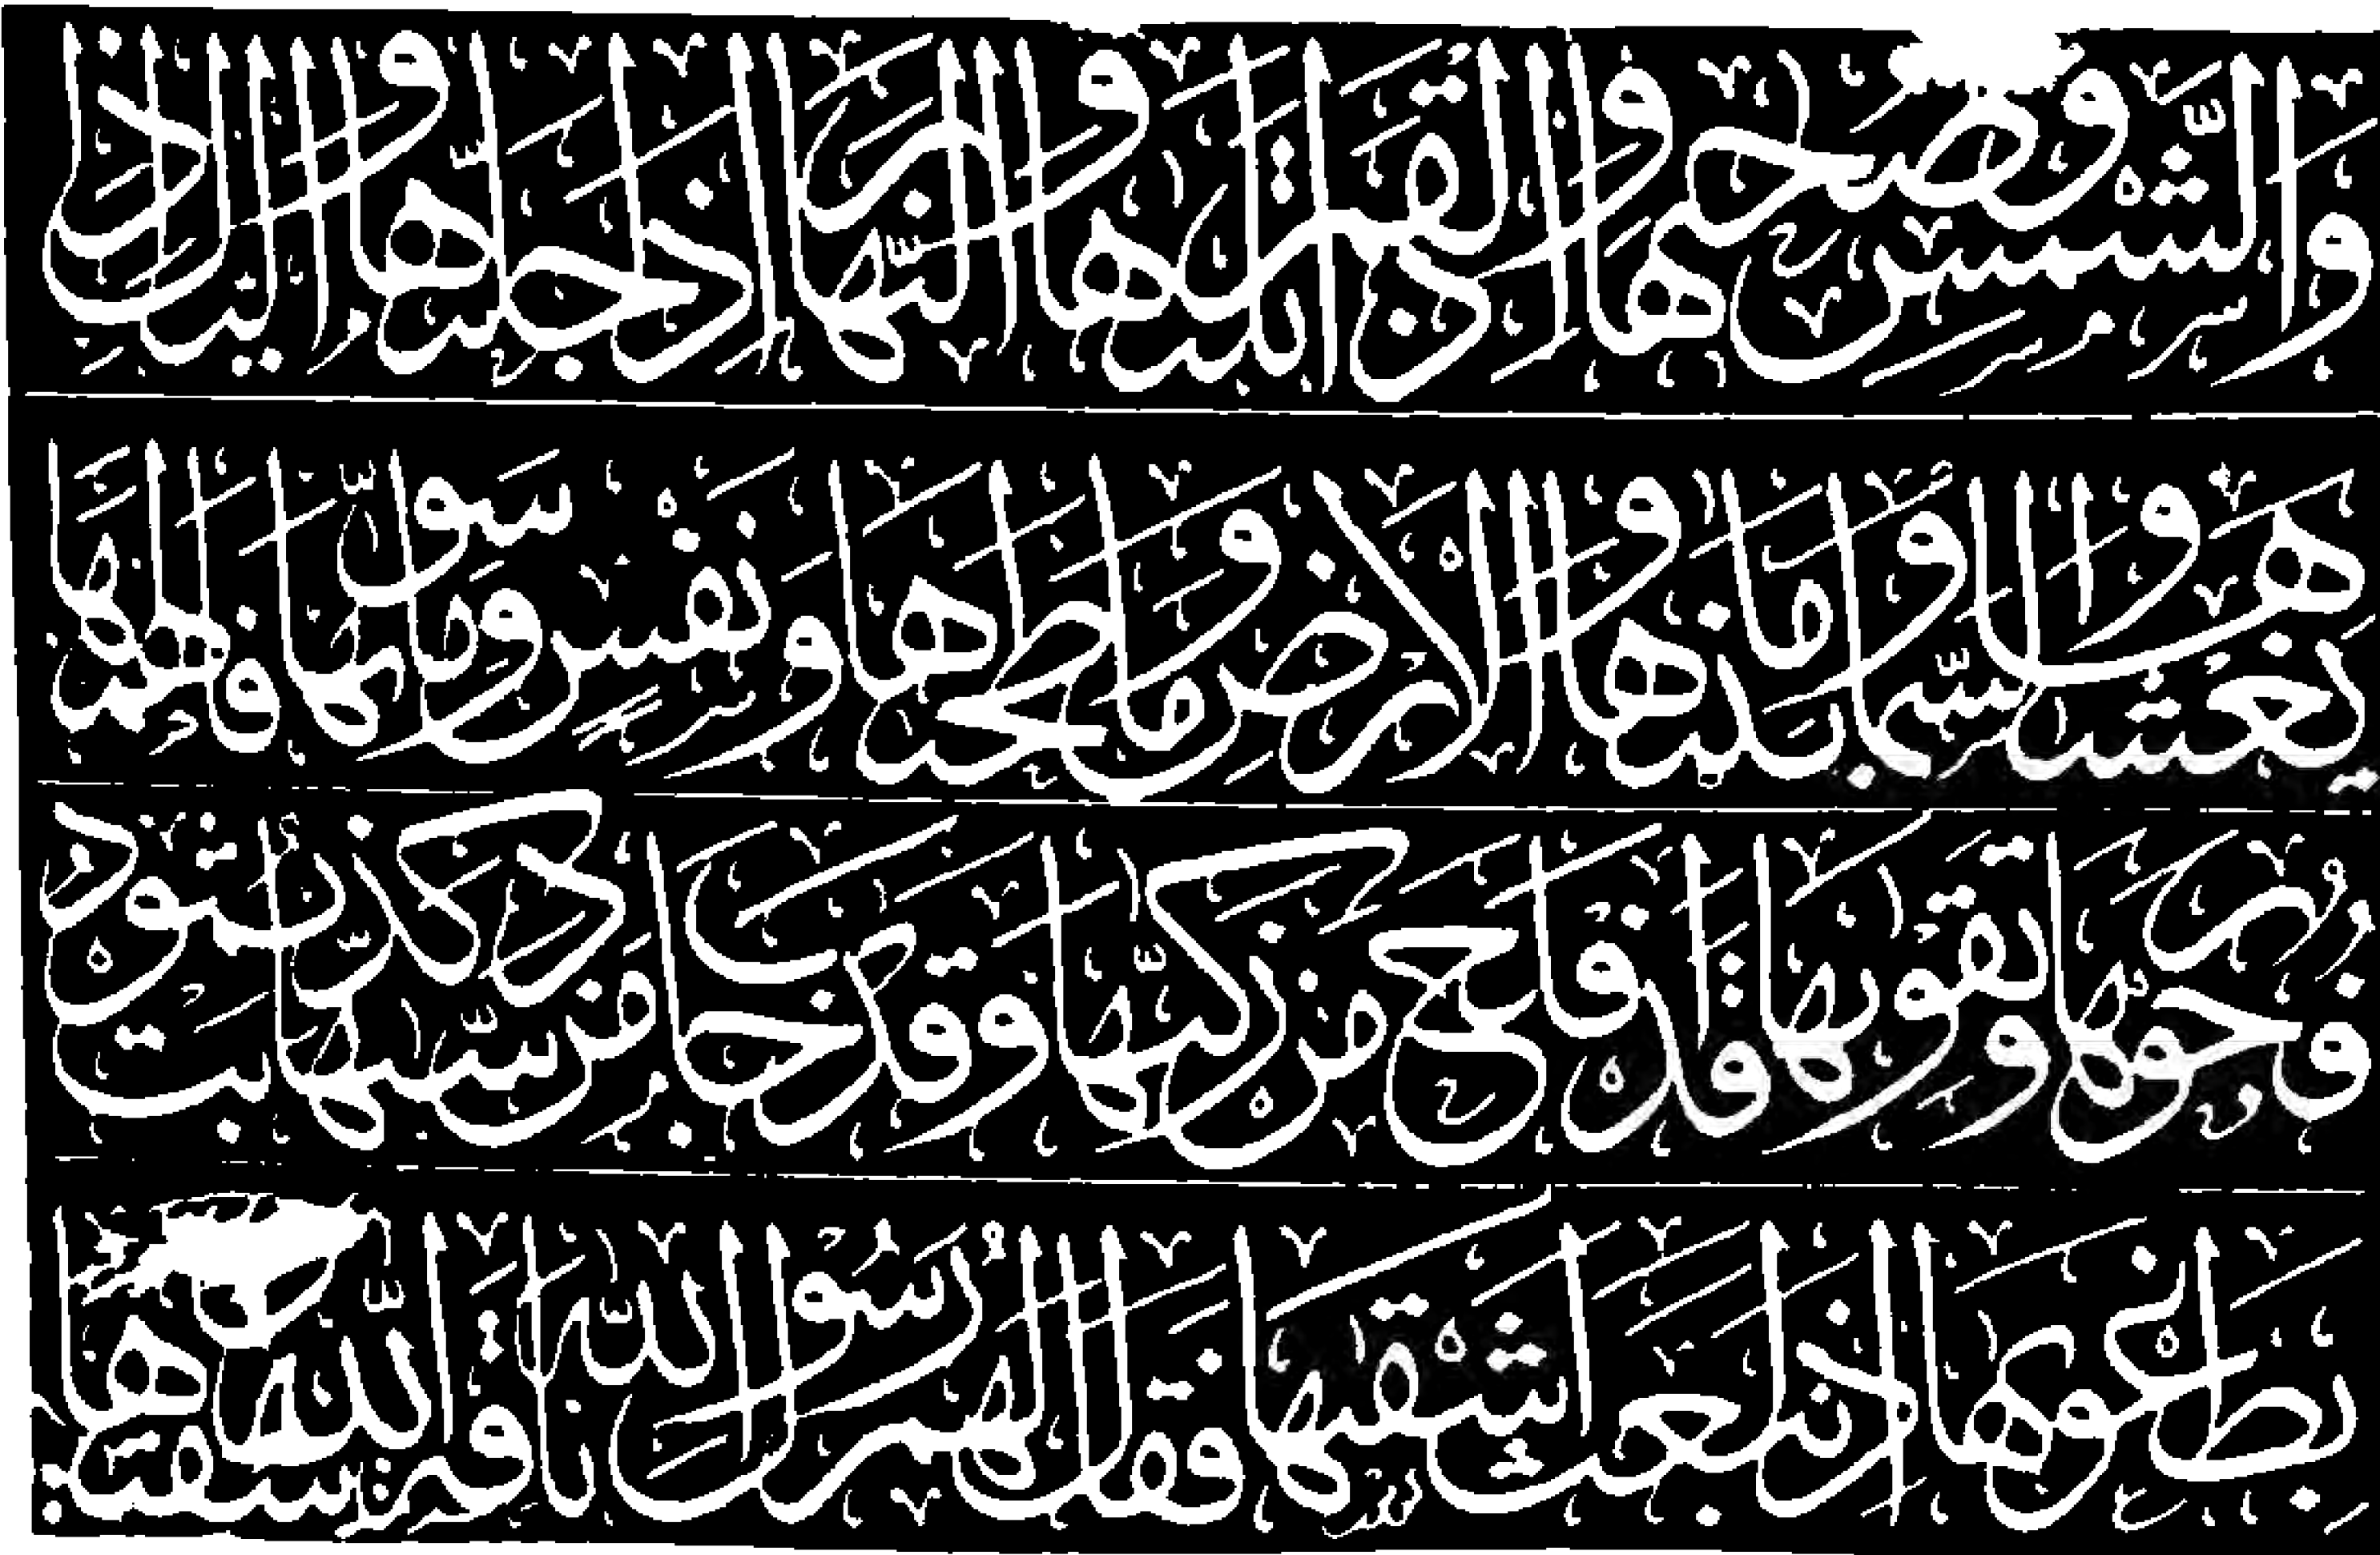 وَالشَّمْسِ وَضُحٰىهَا وَالْقَمَرِ اِذَا تَلٰىهَا وَالنَّهَارِ اِذَا جَلّٰىهَا وَالَّيْلِ اِذَا
يَغْشٰىهَا وَالسَّمَاءِ وَمَا بَنٰىهَا وَالْاَرْضِ وَمَا طَحٰىهَا وَنَفْسٍ وَمَا سَوّٰىهَا فَاَلْهَمَهَا
فُجُورَهَا وَتَقْوٰىهَا قَدْ اَفْلَحَ مَنْ زَكّٰىهَا وَقَدْ خَابَ مَنْ دَسّٰىهَا كَذَّبَتْ ثَمُودُ
بِطَغْوٰىهَا اِذِ انْبَعَثَ اَشْقٰىهَا فَقَالَ لَهُمْ رَسُولُ اللّٰهِ نَاقَةَ اللّٰهِ وَسُقْيٰهَا